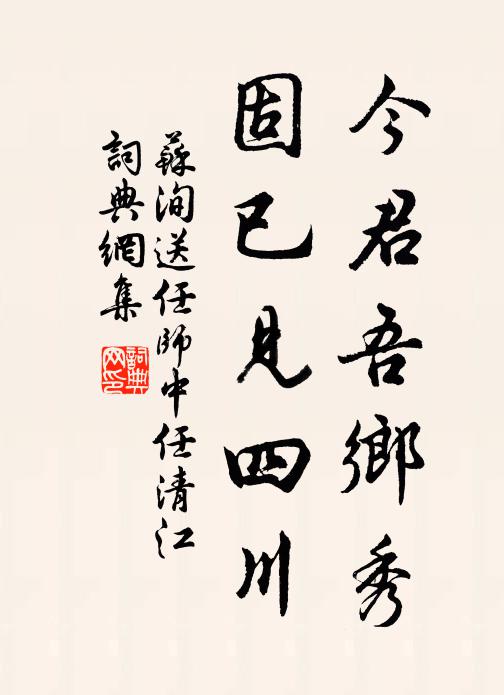 今君吾鄉秀
固已見四川
蘇洵送任師中任清江
詞典網集
詞典网印